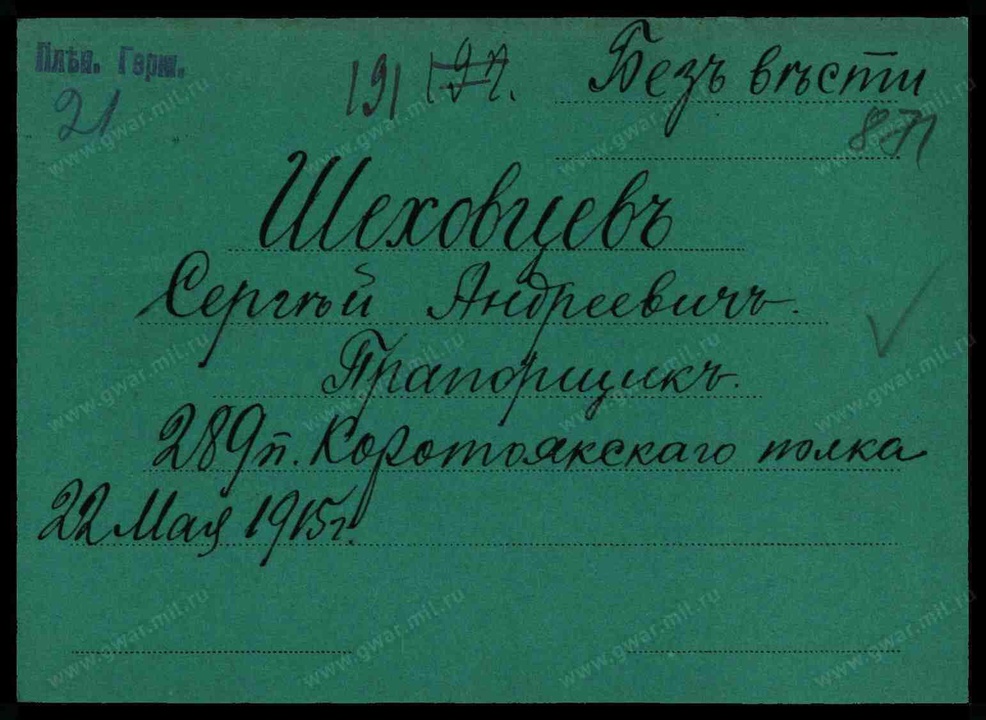 Плѣн. Герм.
21
191
Безъ вѣсти
8-71
Шеховцевъ
Сергѣй Андреевичъ.
Прапорщикъ.
289п. Коротоякскаго полка
22 Мая 1915г.
www.gwar.mil.ru